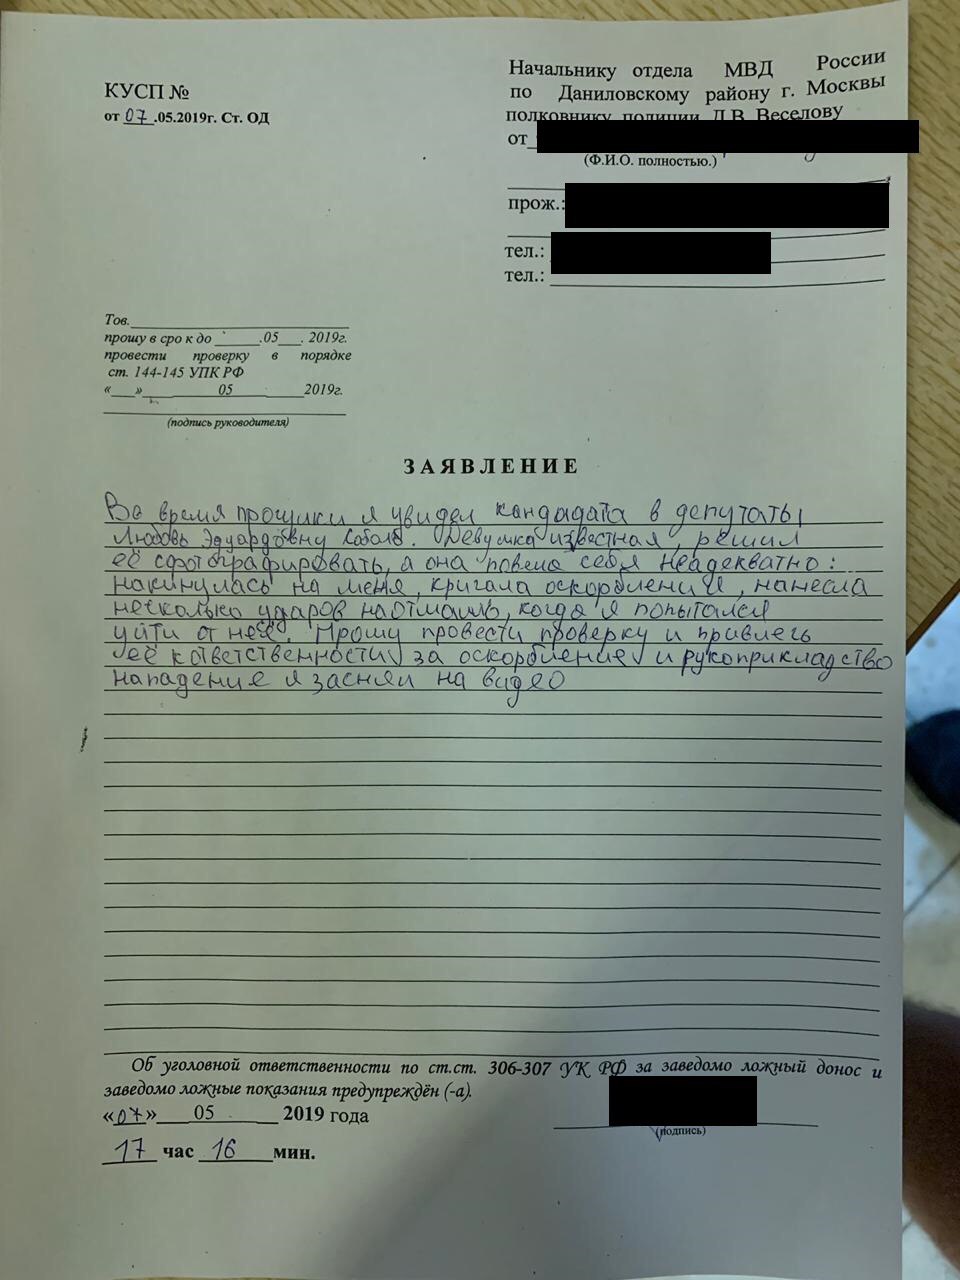 КУСП №
от 07.05.2019г. Ст. ОД
Начальнику отдела МВД России
по Даниловскому району г. Москвы
полковнику полиции Д.В. Веселову
от
(Ф.И.О. полностью.)
прож.:
тел.:
тел.:
Тов.
прошу в сро к до .05 . 2019г.
провести проверку в порядке
ст. 144-145 УПК РФ
« » 05 2019г.
(подпись руководителя)
ЗАЯВЛЕНИЕ
Во время прогулки я увидел кандидата в депутаты
Любовь Эдуардовну Соболь. Девушка известная, решил
её сфотографировать, а она повела себя неадекватно:
накинулась на меня, кричала оскорбления, нанесла
несколько ударов наотмашь, когда я попытался
уйти от неё. Прошу провести проверку и привлечь
её к ответственности за оскорбление и рукоприкладство
нападение я заснял на видео
Об уголовной ответственности по ст.ст. 306-307 УК РФ за заведомо ложный донос и
заведомо ложные показания предупреждён (-а).
«07» 05 2019 года
(подпись)
17 час 16 мин.